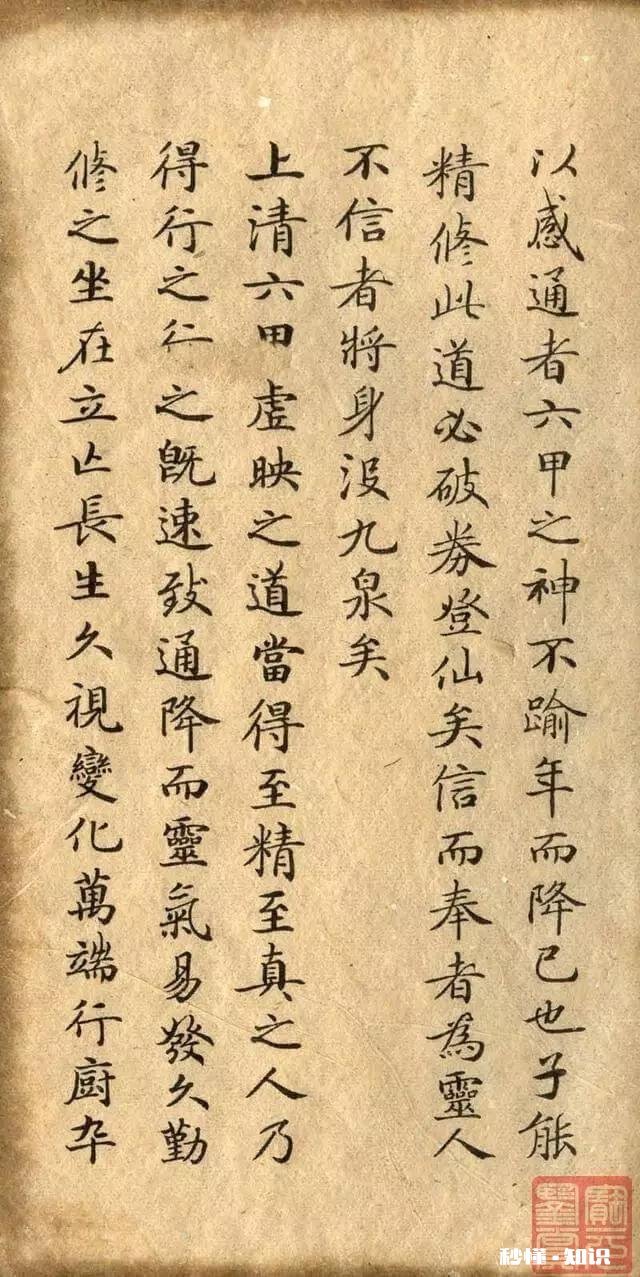 以感通者六甲之神不踰年而降己也子能
精修此道必破券登仙矣信而奉者為靈人
不信者將身没九泉矣
上清六甲虛映之道當得至精至真之人乃
得行之行之既速致通降而靈氣易發久勤
修之坐在立亡長生久視變化萬端行廚卒
秒懂·知识